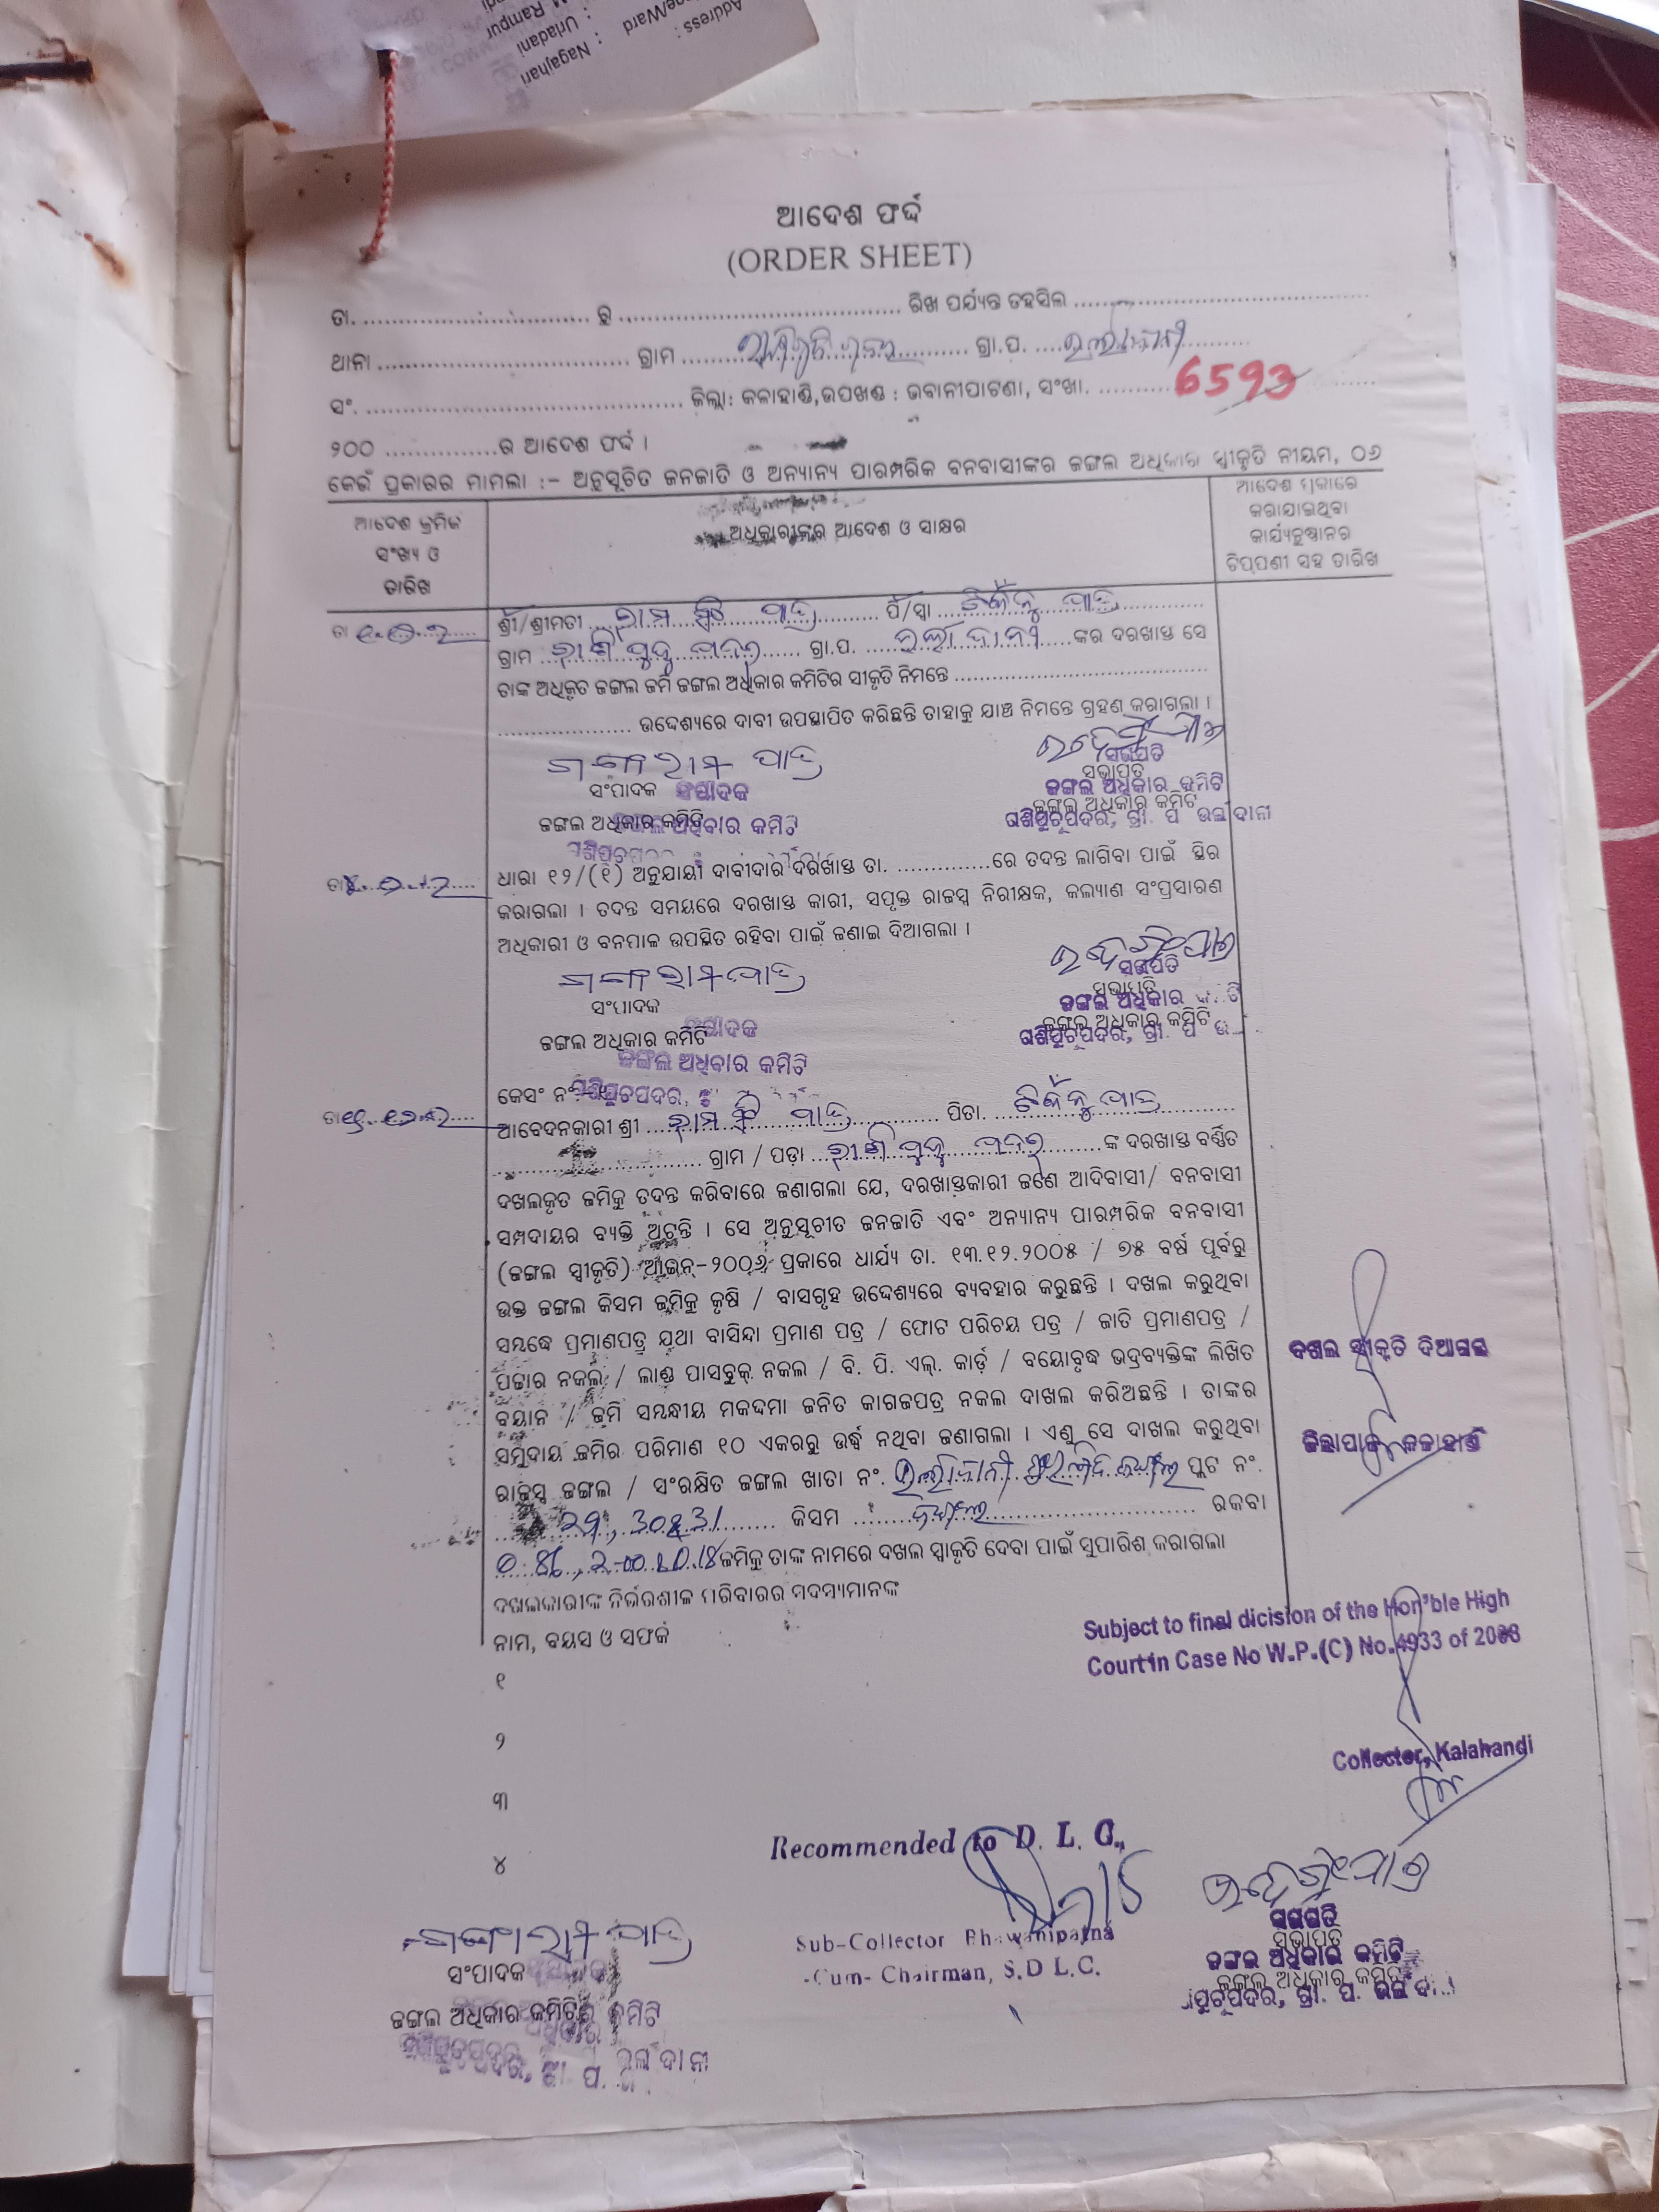 Address :
Nagajhari
Urladani
Rampur
ଆଦେଶ ଫର୍ଦ୍ଦ
(ORDER SHEET)
ତା. ........ ରୁ ........ ରିଖ ପର୍ଯ୍ୟନ୍ତ ତହସିଲ ........
ଥାନା ........ ଗ୍ରାମ ........ ଗ୍ରା.ପ. ....
ସଂ. ........ ଜିଲ୍ଲା: କଳାହାଣ୍ଡି,ଉପଖଣ୍ଡ : ଭବାନୀପାଟଣା, ସଂଖା. ........ 6593
୨୦୦ ........ର ଆଦେଶ ଫର୍ଦ୍ଦ ।
କେଉଁ ପ୍ରକାରର ମାମଲା :- ଅନୁସୂଚିତ ଜନଜାତି ଓ ଅନ୍ୟାନ୍ୟ ପାରମ୍ପରିକ ବନବାସୀଙ୍କର ଜଙ୍ଗଲ ଅଧିକାର ସ୍ୱୀକୃତି ନୀୟମ, ୦୬
ଆଦେଶ କ୍ରମିକ
ସଂଖ୍ୟ ଓ
ତାରିଖ
ଅଧିକାରୀଙ୍କର ଆଦେଶ ଓ ସାକ୍ଷର
ଆଦେଶ ପ୍ରକାରେ
କରାଯାଇଥିବା
କାର୍ଯ୍ୟନୁଷ୍ଠାନର
ଟିପ୍ପଣୀ ସହ ତାରିଖ
ତା
ଶ୍ରୀ/ଶ୍ରୀମତୀ ..... ରାମ ସିଂ ପାତ୍ର ..... ପି/ସ୍ୱା ..... ପାତ୍ର
ଗ୍ରାମ ........ ଗ୍ରା.ପ. ..... ଉର୍ଲାଦାନୀ .....ଙ୍କର ଦରଖାସ୍ତ ସେ
ତାଙ୍କ ଅଧିକୃତ ଜଙ୍ଗଲ ଜମି ଜଙ୍ଗଲ ଅଧିକାର କମିଟିର ସୀକୃତି ନିମନ୍ତେ ........
........ ଉଦ୍ଦେଶ୍ୟରେ ଦାବୀ ଉପସ୍ଥାପିତ କରିଛନ୍ତି ତାହାକୁ ଯାଞ୍ଚ ନିମନ୍ତେ ଗ୍ରହଣ କରାଗଲା ।
ଗଙ୍ଗାରାମ ପାତ୍ର
ସଂପାଦକ ସଂପାଦକ
ଜଙ୍ଗଲ ଅଧିକାର କମିଟି
ସଭାପତି
ସଭାପତି
ଜଙ୍ଗଲ ଅଧିକାର କମିଟି
ଜଙ୍ଗଲ ଅଧିକାର କମିଟି
ତା
ଧାରା ୧୨/(୧) ଅନୁଯାୟୀ ଦାବୀଦାର ଦରଖାସ୍ତ ତା. ........ରେ ତଦନ୍ତ ଲାଗିବା ପାଇଁ ସ୍ଥିର
କରାଗଲା । ତଦନ୍ତ ସମୟରେ ଦରଖାସ୍ତ କାରୀ, ସପୃକ୍ତ ରାଜସ୍ୱ ନିରୀକ୍ଷକ, କଲ୍ୟାଣ ସଂପ୍ରସାରଣ
ଅଧିକାରୀ ଓ ବନପାଳ ଉପସ୍ଥିତ ରହିବା ପାଇଁ ଜଣାଇ ଦିଆଗଲା ।
ଗଙ୍ଗାରାମ ପାତ୍ର
ସଂପାଦକ
ସଂପାଦକ
ଜଙ୍ଗଲ ଅଧିକାର କମିଟି
ଜଙ୍ଗଲ ଅଧିକାର କମିଟି
ସଭାପତି
ସଭାପତି
ଜଙ୍ଗଲ ଅଧିକାର
ଜଙ୍ଗଲ ଅଧିକାର କମିଟି
କେସଂ ନଂ
ତା
ଆବେଦନକାରୀ ଶ୍ରୀ ..... ରାମ ସିଂ ପାତ୍ର ..... ପିତା. ..... ପାତ୍ର
........ ଗ୍ରାମ / ପଡ଼ା ........ଙ୍କ ଦରଖାସ୍ତ ବର୍ଣ୍ଣିତ
ଦଖଲକୃତ ଜମିକୁ ତଦନ୍ତ କରିବାରେ ଜଣାଗଲା ଯେ, ଦରଖାସ୍ତକାରୀ ଜଣେ ଆଦିବାସୀ/ ବନବାସୀ
ସମ୍ପଦାୟର ବ୍ୟକ୍ତି ଅଟନ୍ତି । ସେ ଅନୁସୂଚୀତ ଜନଜାତି ଏବଂ ଅନ୍ୟାନ୍ୟ ପାରମ୍ପରିକ ବନବାସୀ
(ଜଙ୍ଗଲ ସ୍ୱୀକୃତି) ଆଇନ୍-୨୦୦୬ ପ୍ରକାରେ ଧାର୍ଯ୍ୟ ତା. ୧୩.୧୨.୨୦୦୫ / ୭୫ ବର୍ଷ ପୂର୍ବରୁ
ଉକ୍ତ ଜଙ୍ଗଲ କିସମ ଜମିକୁ କୃଷି / ବାସଗୃହ ଉଦ୍ଦେଶ୍ୟରେ ବ୍ୟବହାର କରୁଛନ୍ତି । ଦଖଲ କରୁଥିବା
ସମ୍ଭଦ୍ଧେ ପ୍ରମାଣପତ୍ର ଯଥା ବାସିନ୍ଦା ପ୍ରମାଣ ପତ୍ର / ଫୋଟ ପରିଚୟ ପତ୍ର / ଜାତି ପ୍ରମାଣପତ୍ର /
ପଟ୍ଟାର ନକଲ / ଲାଣ୍ଡ ପାସବୁକ୍ ନକଲ / ବି. ପି. ଏଲ୍. କାର୍ଡ଼ / ବୟୋବୃଦ୍ଧ ଭଦ୍ରବ୍ୟକ୍ତିଙ୍କ ଲିଖିତ
ବୟାନ / ଜମି ସମ୍ଭନ୍ଧୀୟ ମକଦ୍ଦମା ଜନିତ କାଗଜପତ୍ର ନକଲ ଦାଖଲ କରିଅଛନ୍ତି । ତାଙ୍କର
ସମୁଦାୟ ଜମିର ପରିମାଣ ୧୦ ଏକରରୁ ଉର୍ଦ୍ଧ୍ୱ ନଥିବା ଜଣାଗଲା । ଏଣୁ ସେ ଦାଖଲ କରୁଥିବା
ରାଜସ୍ୱ ଜଙ୍ଗଲ / ସଂରକ୍ଷିତ ଜଙ୍ଗଲ ଖାତା ନଂ. ........ ପ୍ଲଟ ନଂ.
29, 30 & 31 ..... କିସମ ..... ଜଙ୍ଗଲ ..... ରକବା
ଜମିକୁ ତାଙ୍କ ନାମରେ ଦଖଲ ସ୍ୱୀକୃତି ଦେବା ପାଇଁ ସୁପାରିଶ କରାଗଲା
ଦଖଲକାରୀଙ୍କ ନିର୍ଭରଶୀଳ ପରିବାରର ସଦସ୍ୟମାନଙ୍କ
ନାମ, ବୟସ ଓ ସଫର୍କ
୧
୨
୩
୪
ଦଖଲ ସ୍ୱୀକୃତି ଦିଆଗଲା
ଜିଲ୍ଲାପାଳ କଳାହାଣ୍ଡି
Subject to final dicision of the Hon'ble High
Court in Case No W.P.(C) No.4933 of 2008
Collector, Kalahandi
Recommended to D. L. C.,
Sub-Collector Bhawanipatna
-Cum- Chairman, S.D L.C.
ଗଙ୍ଗାରାମ ପାତ୍ର
ସଂପାଦକ
ଜଙ୍ଗଲ ଅଧିକାର କମିଟି
ସଭାପତି
ସଭାପତି
ଜଙ୍ଗଲ ଅଧିକାର କମିଟି
ଜଙ୍ଗଲ ଅଧିକାର କମିଟି